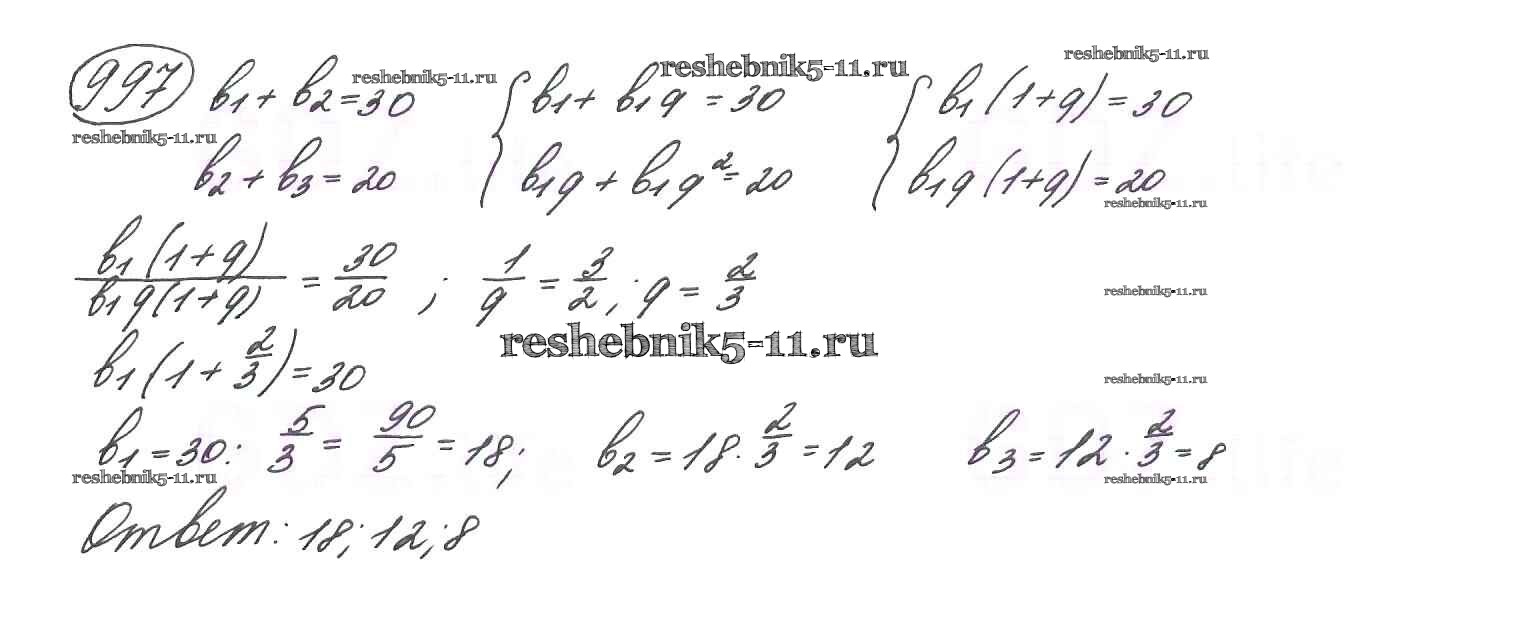 reshebnik5-11.ru
997 b₁ + b₂ = 30 reshebnik5-11.ru { b₁ + b₁q = 30 reshebnik5-11.ru { b₁(1+q) = 30
reshebnik5-11.ru b₂ + b₃ = 20 b₁q + b₁q² = 20 b₁q(1+q) = 20
reshebnik5-11.ru
b₁(1+q)/b₁q(1+q) = 30/20 ; 1/q = 3/2 ; q = 2/3 reshebnik5-11.ru
reshebnik5-11.ru
b₁(1 + 2/3) = 30 reshebnik5-11.ru
b₁ = 30 : 5/3 = 90/5 = 18; b₂ = 18 · 2/3 = 12 b₃ = 12 · 2/3 = 8
reshebnik5-11.ru reshebnik5-11.ru
Ответ: 18; 12; 8